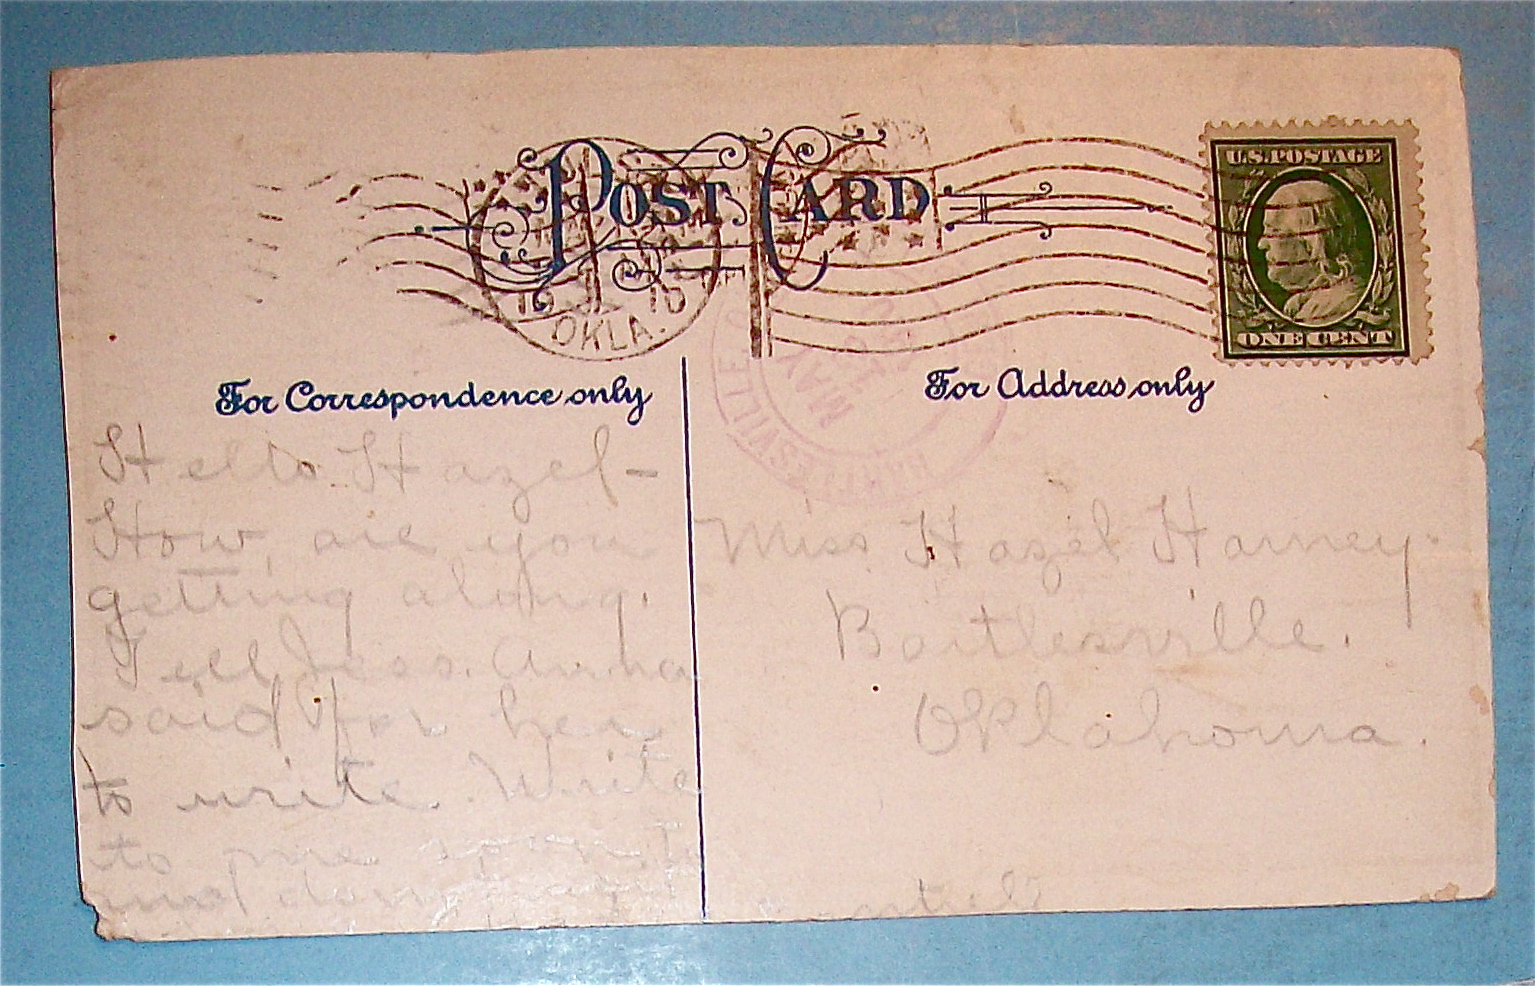 POST CARD
U.S. POSTAGE
ONE CENT
OKLA.
MAY
For Correspondence only
For Address only
Hello Hazel-
How are you
getting along.
Tell Jess. Anna
said for her
to write. Write
to me
and
Miss Hazel Harney.
Bartlesville.
Oklahoma.